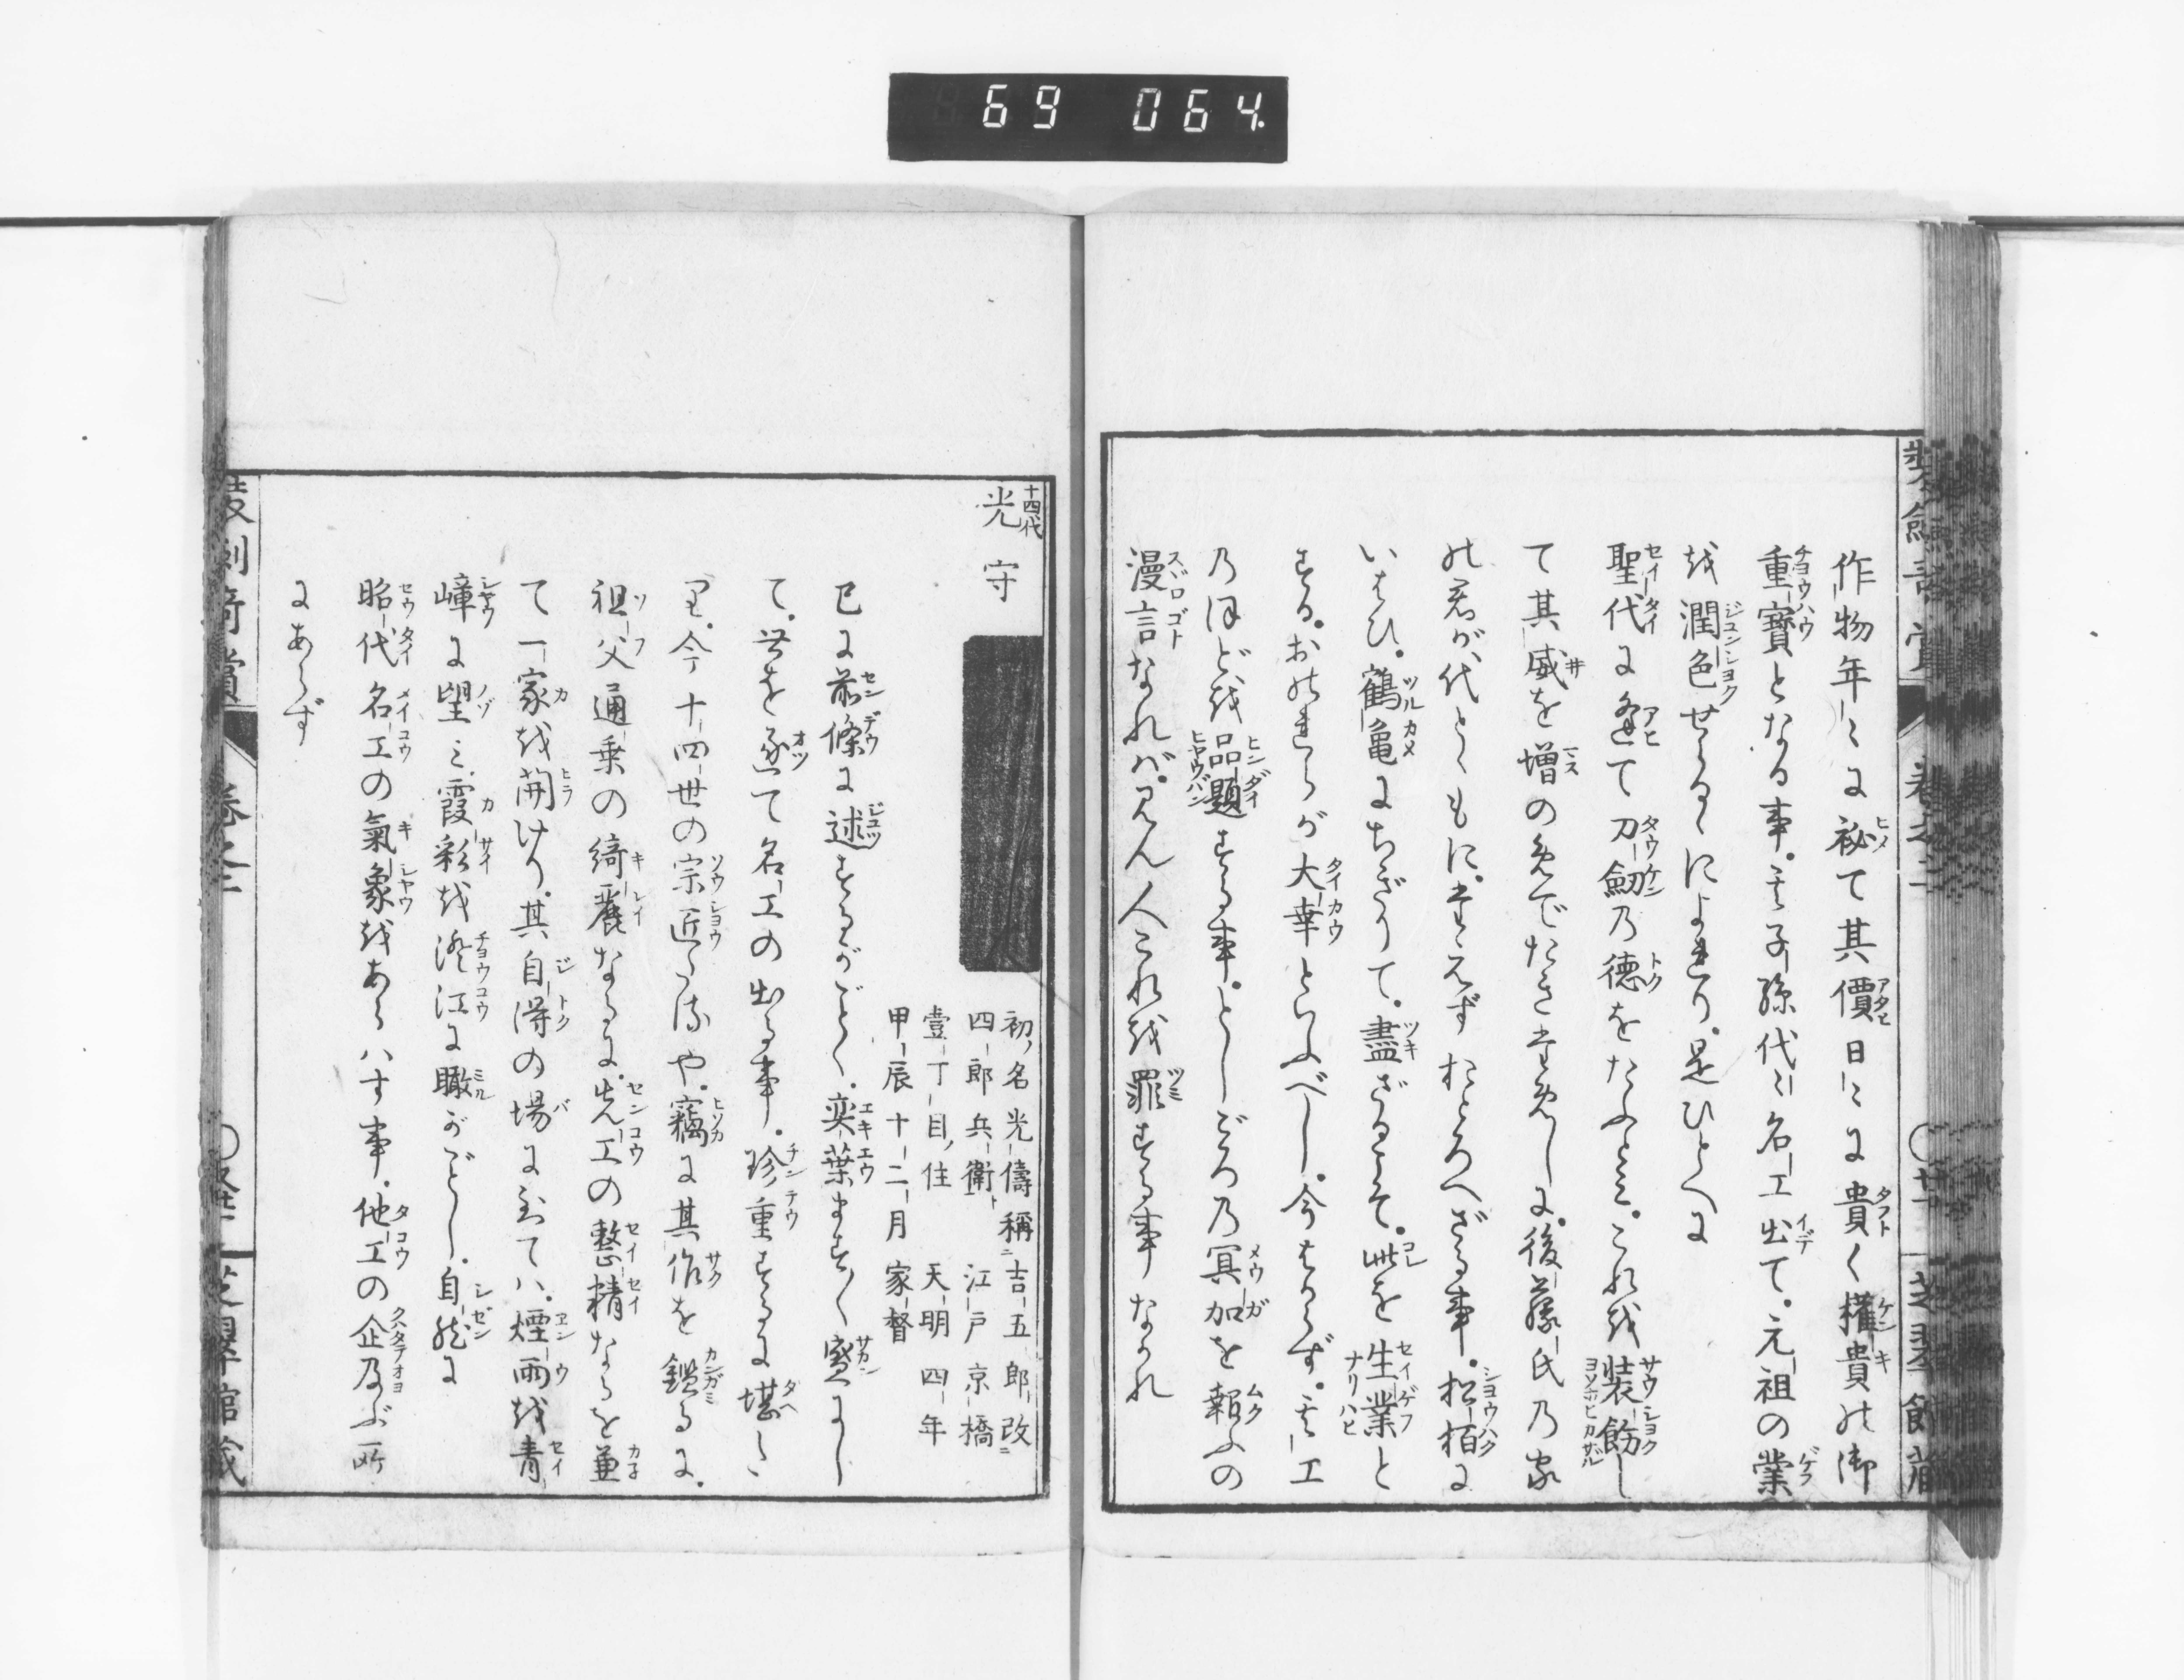 69 064
作物年〻に祕て其價日〻に貴く權貴の御
重寶となる事。其子孫代〻名工出て。元祖の業
を潤色せるによれり。是ひとへに
聖代に逢て刀劔乃徳をたふとみ。これを装飭し
て其威を増のめでたきためしに。後藤氏乃家
の君が代とゝもに。たえずおとろへざる事。松栢に
いはひ。鶴亀にちぎりて。盡ざるこそ。此を生業と
する。おのれらが大幸といふべし。今はからず。其工
乃ほどを品題する事。としごろ乃冥加を報ふの
漫言なれバ。見ん人これを罪する事なかれ
十四代
光守
初ノ名光儔稱ニ吉五郎改ニ
四郎兵衛ト江戸京橋
壹丁目ノ住 天明四年
甲辰十二月家督
已に前條に述するがごとく。奕葉ますく盛にし
て。世を逐て名工の出る事。珍重するに堪たり
今十四世の宗匠や。竊に其作を鑑るに。
祖父通乗の綺麗なるに。先工の整精なるを兼
て一家を開けり。其自得の場に至てハ。煙雨を青
嶂に望ミ。霞彩を澄江に瞰がごとし。自然に
昭代名工の氣象をあらハす事。他工の企及ぶ所
にあらず
装劍奇賞 卷之二 芝翠館藏